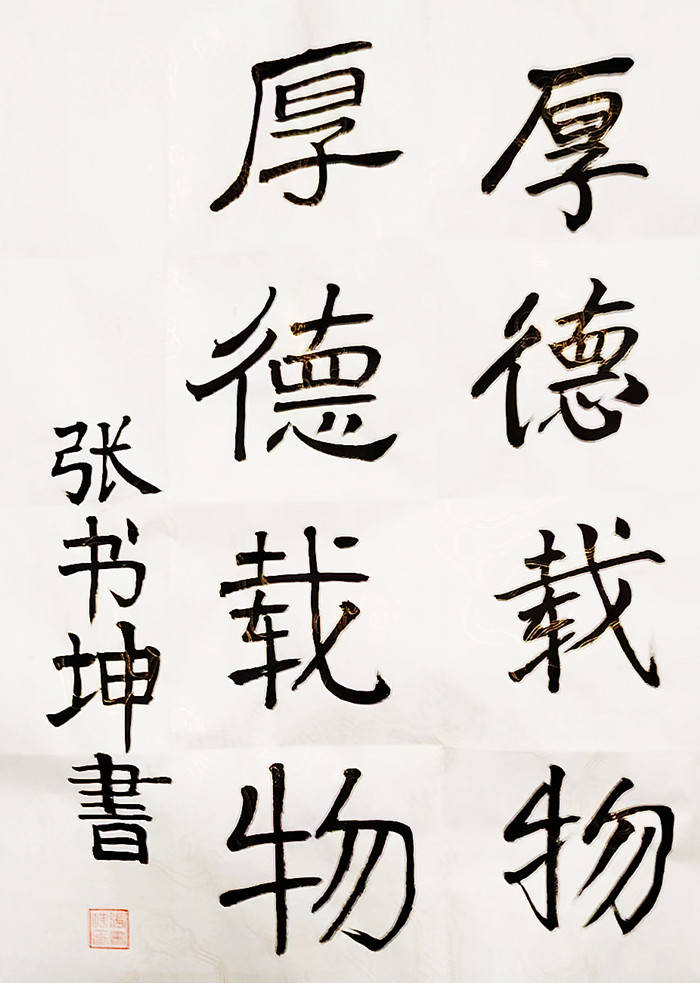 厚德载物
厚德载物
张书坤書